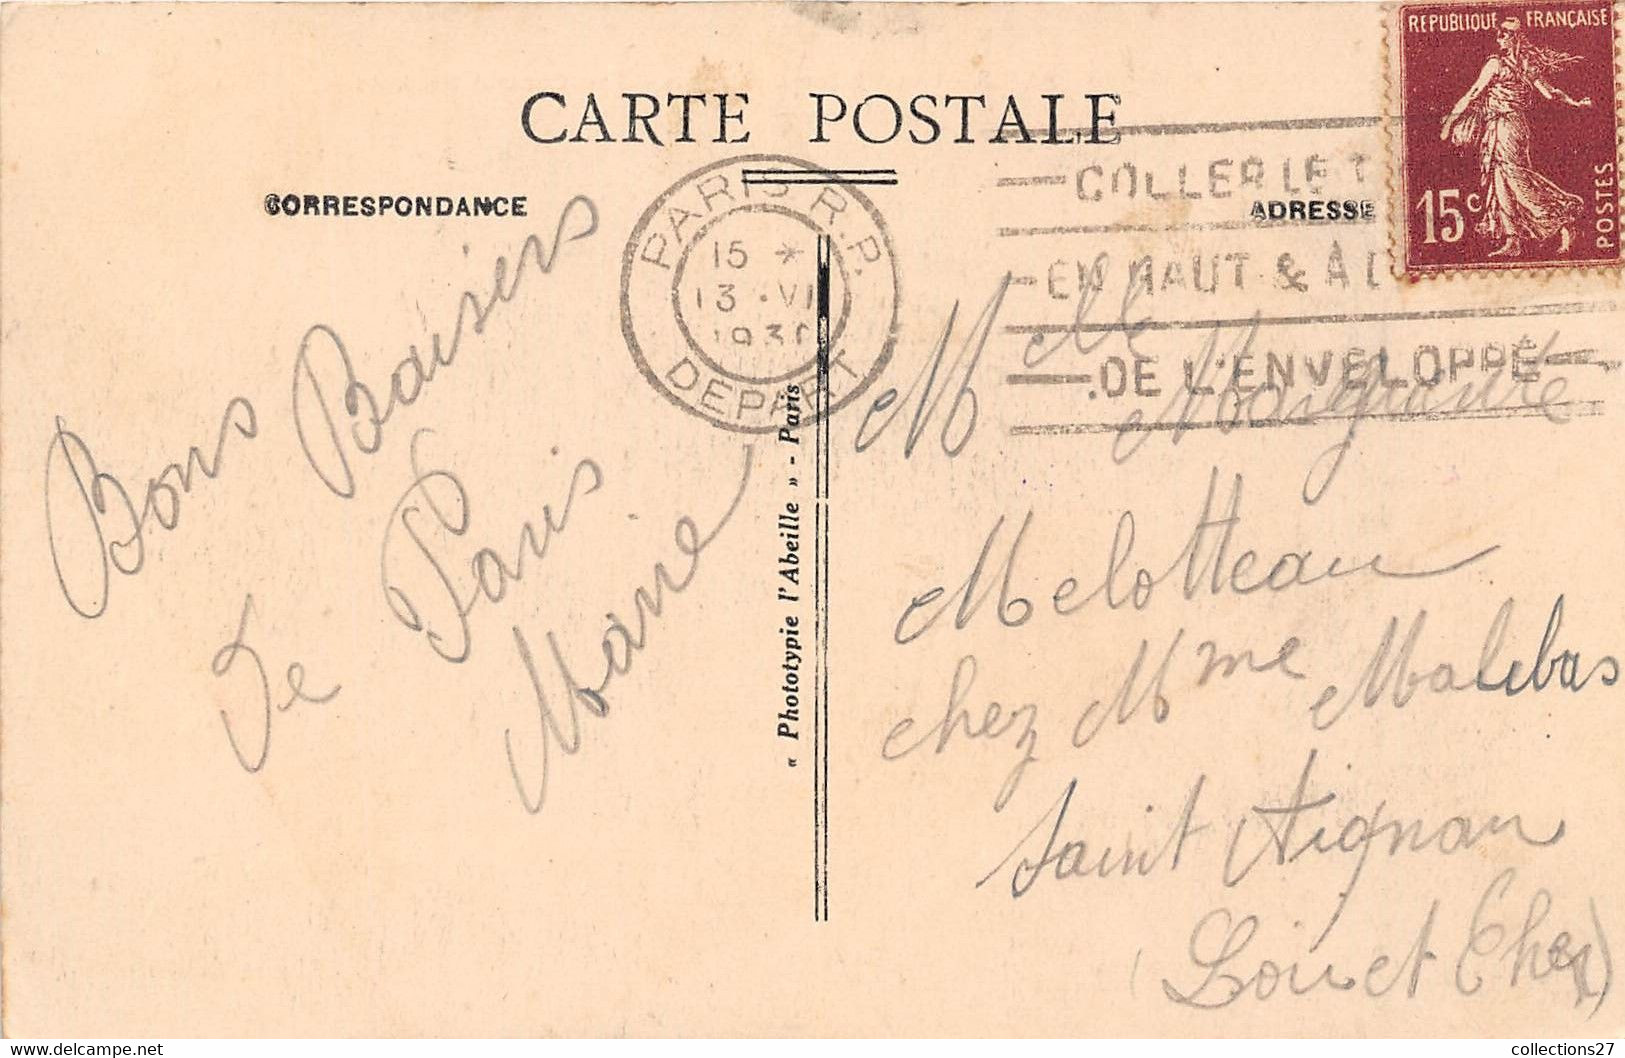 CARTE POSTALE
CORRESPONDANCE
ADRESSE
REPUBLIQUE FRANÇAISE
15c
POSTES
PARIS R.P.
15 *
13 · VI
193
DEPART
COLLER LE T
EN HAUT & À L
DE L'ENVELOPPE
Bons Baisers
De Paris
Marie
« Phototypie l'Abeille » - Paris
Melle Marguerite
Melotteau
chez Mme Malebas
Saint Aignan
(Loir et Cher)
collections27